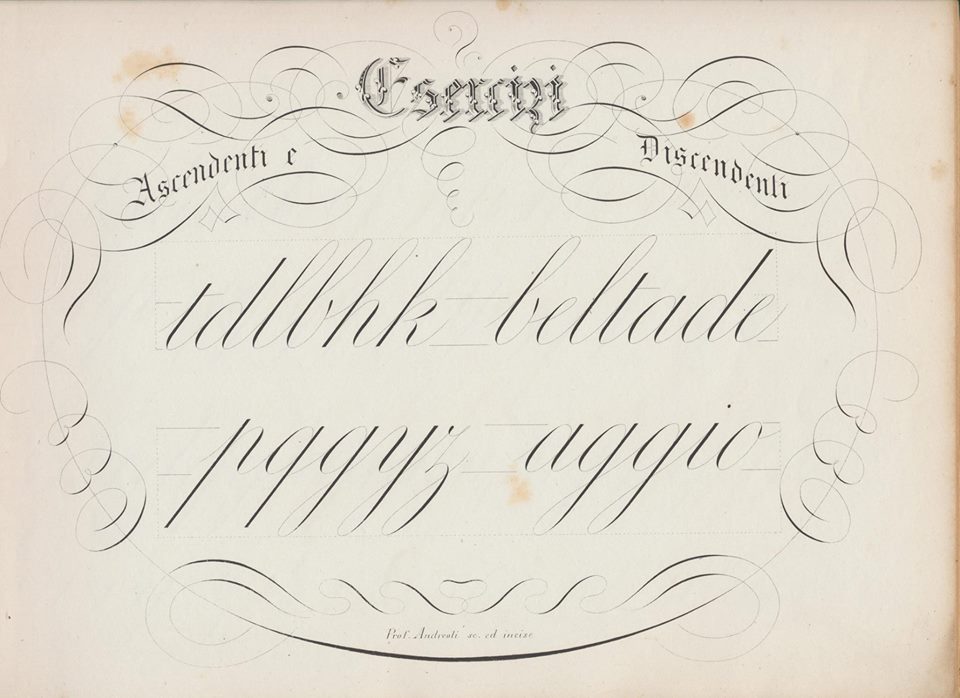 Esercizi
Ascendenti e Discendenti
tdlbhk beltade
pqgyz aggio
Prof. Andreoli sc. ed incise